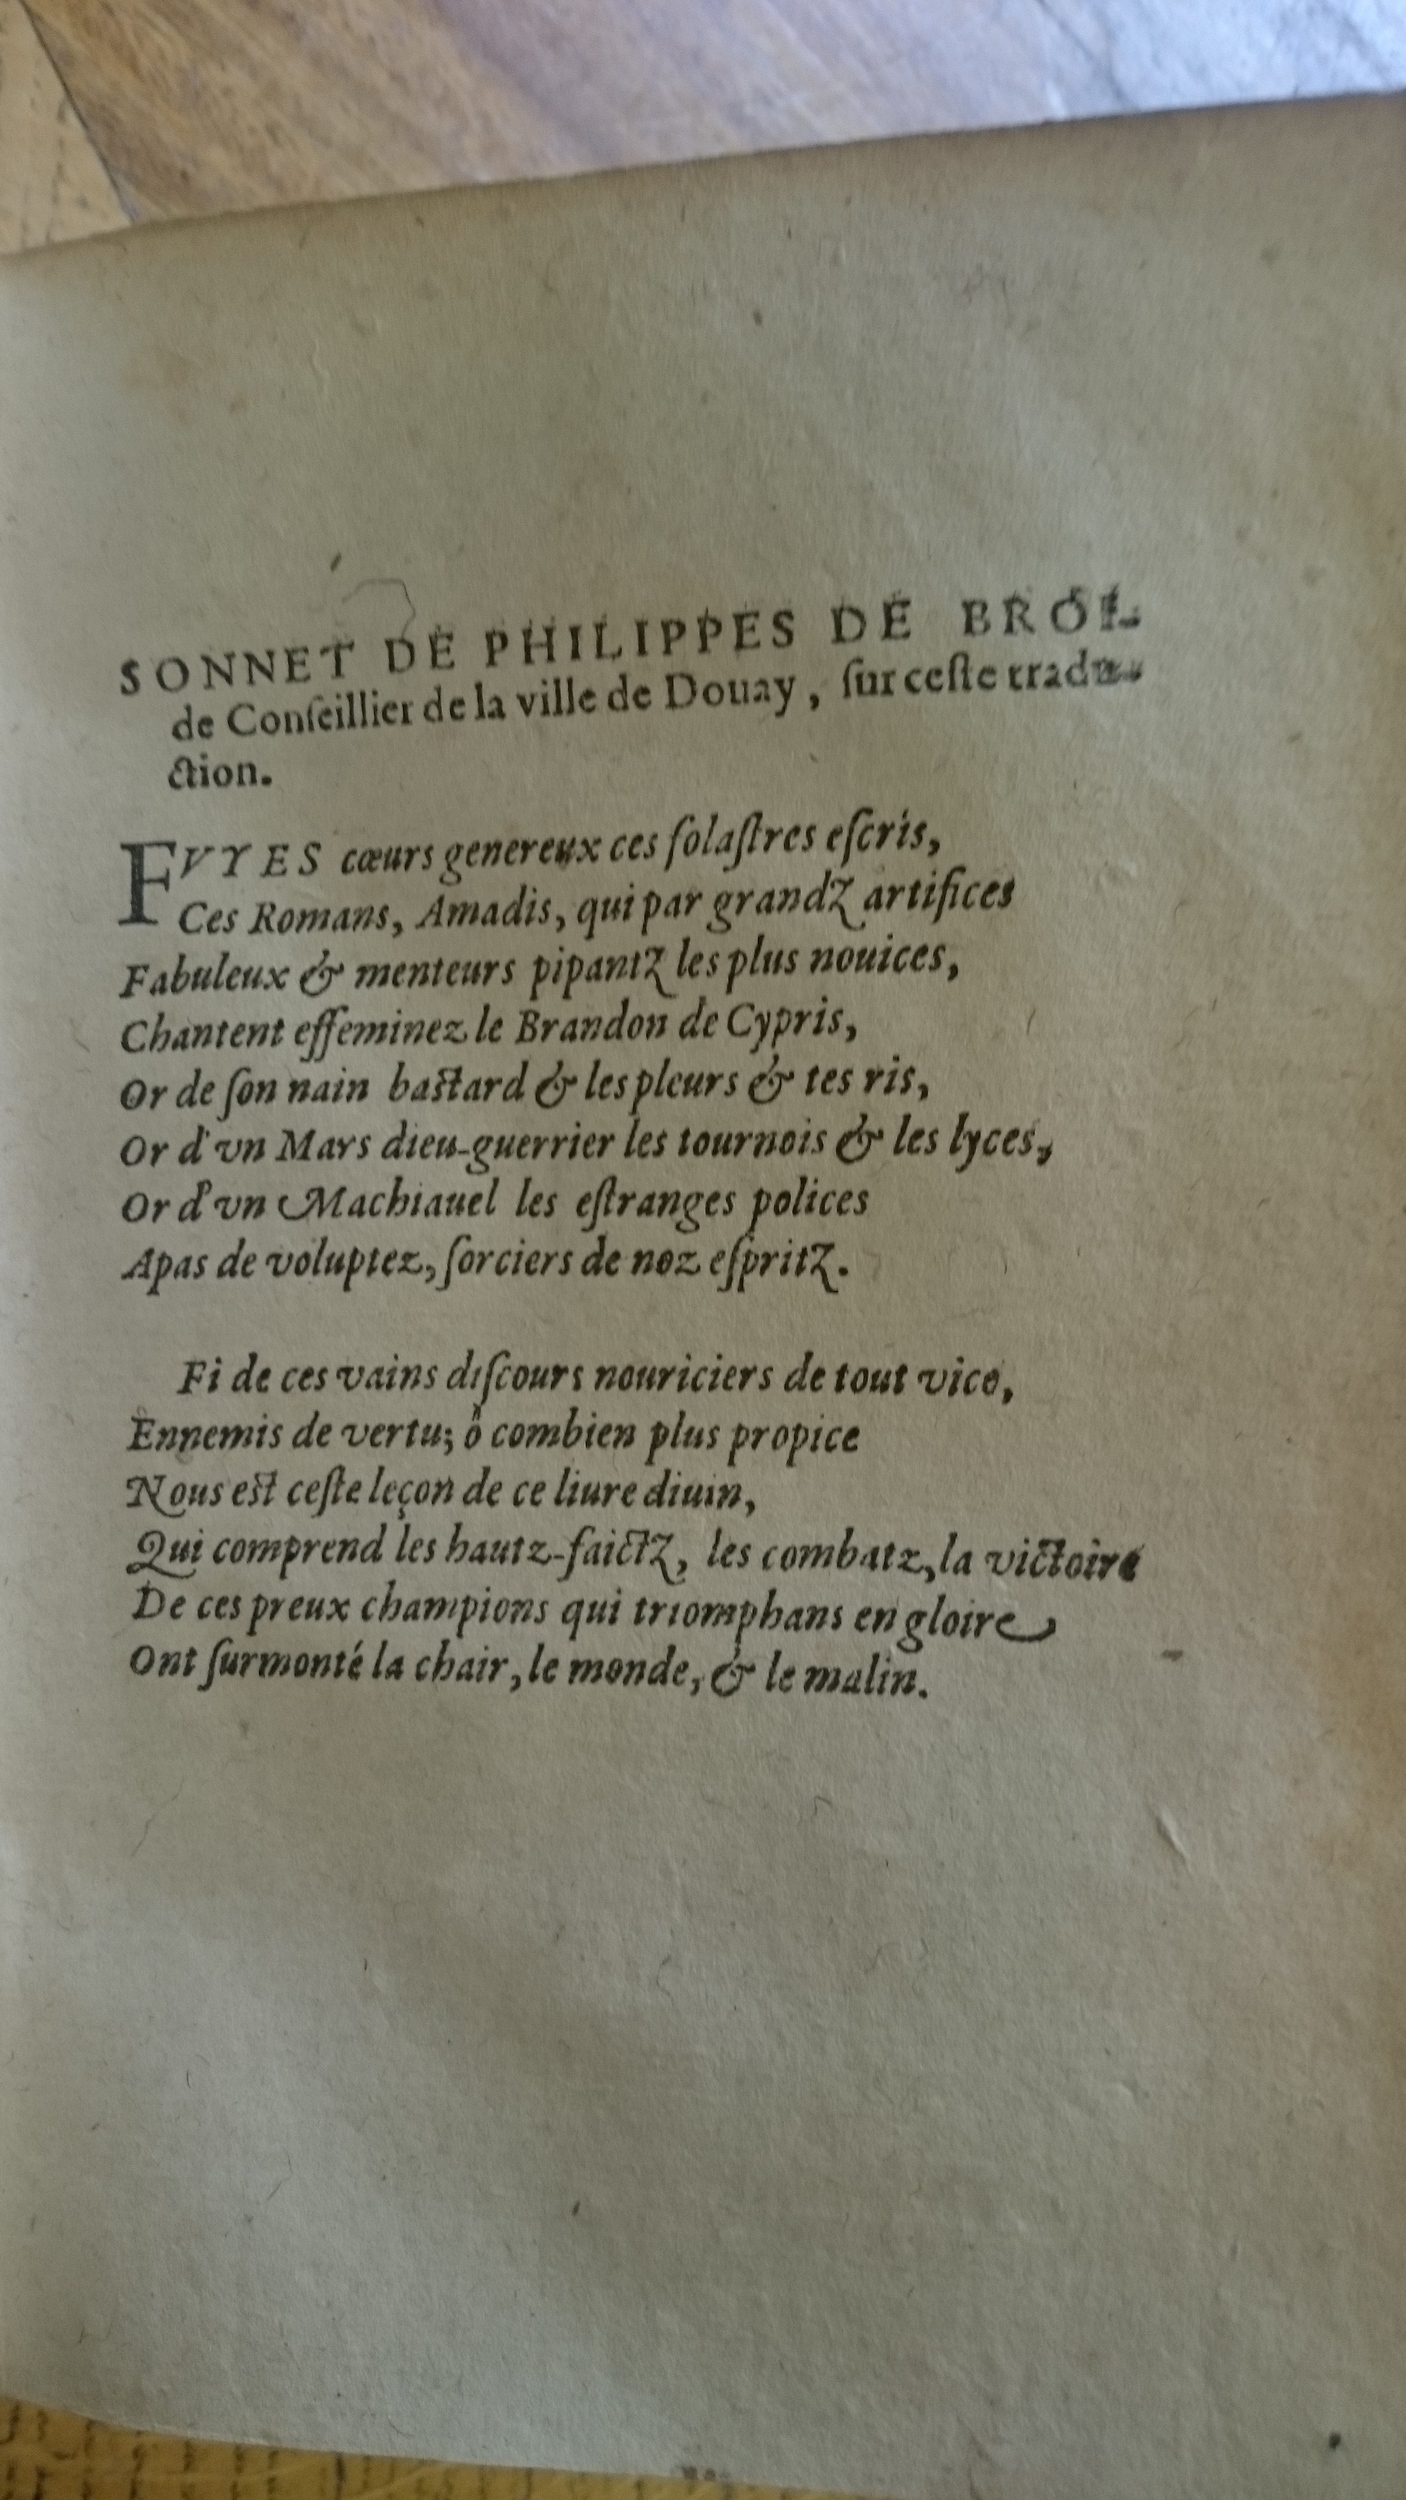 SONNET DE PHILIPPES DE BROI-
de Conſeillier de la ville de Douay, ſur ceſte tradu-
ction.
FVYES cœurs genereux ces folaſtres eſcris,
Ces Romans, Amadis, qui par grandz artifices
Fabuleux & menteurs pipantz les plus nouices,
Chantent effeminez le Brandon de Cypris,
Or de ſon nain baſtard & les pleurs & tes ris,
Or d'vn Mars dieu-guerrier les tournois & les lyces,
Or d'vn Machiauel les eſtranges polices
Apas de voluptez, ſorciers de noz eſpritz.
Fi de ces vains diſcours nouriciers de tout vice,
Ennemis de vertu; ô combien plus propice
Nous eſt ceſte leçon de ce liure diuin,
Qui comprend les hautz-faictz, les combatz, la victoire
De ces preux champions qui triomphans en gloire
Ont ſurmonté la chair, le monde, & le malin.